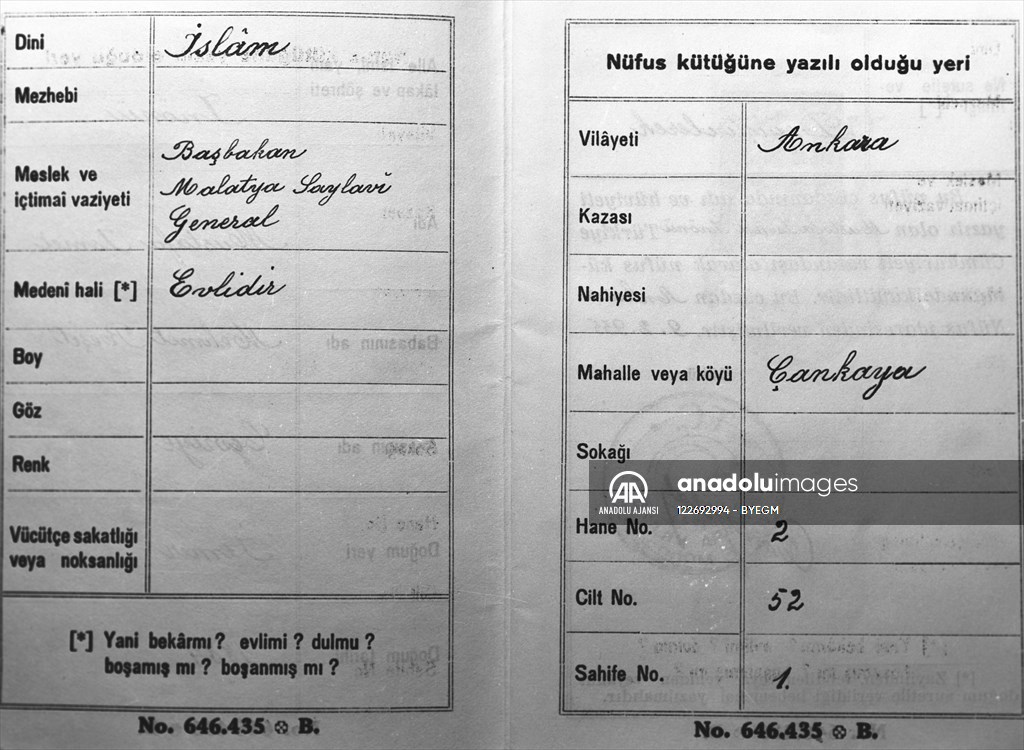 Dini İslâm
Mezhebi
Meslek ve
içtimaî vaziyeti
Başbakan
Malatya Saylavı
General
Medenî hali [*] Evlidir
Boy
Göz
Renk
Vücütçe sakatlığı
veya noksanlığı
[*] Yani bekârmı? evlimi? dulmu?
boşamış mı? boşanmış mı?
No. 646.435 B.
Nüfus kütüğüne yazılı olduğu yeri
Vilâyeti Ankara
Kazası
Nahiyesi
Mahalle veya köyü Çankaya
Sokağı
Hane No. 2
Cilt No. 52
Sahife No. 1.
No. 646.435 B.
AA
ANADOLU AJANSI
anadoluimages
12692994 - BYEGM